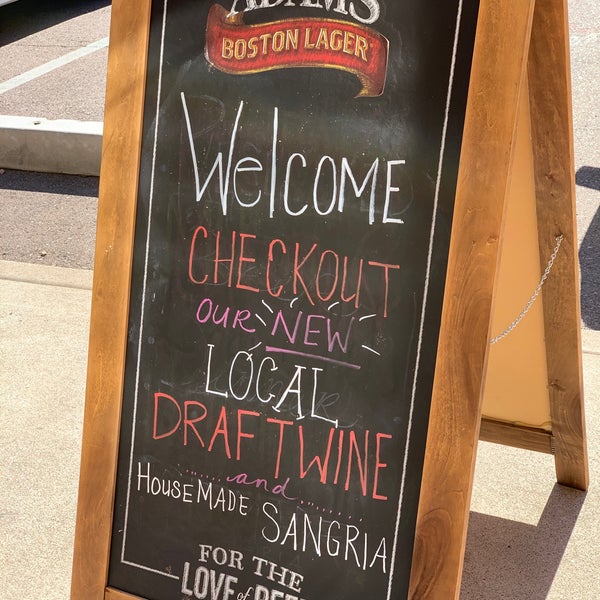 ADAMS
BOSTON LAGER
WelCOME
CHECKOUT
OUR NEW
LOCAL
DRAFT WINE
and
HOUSEMADE SANGRIA
FOR THE
LOVE of BEER